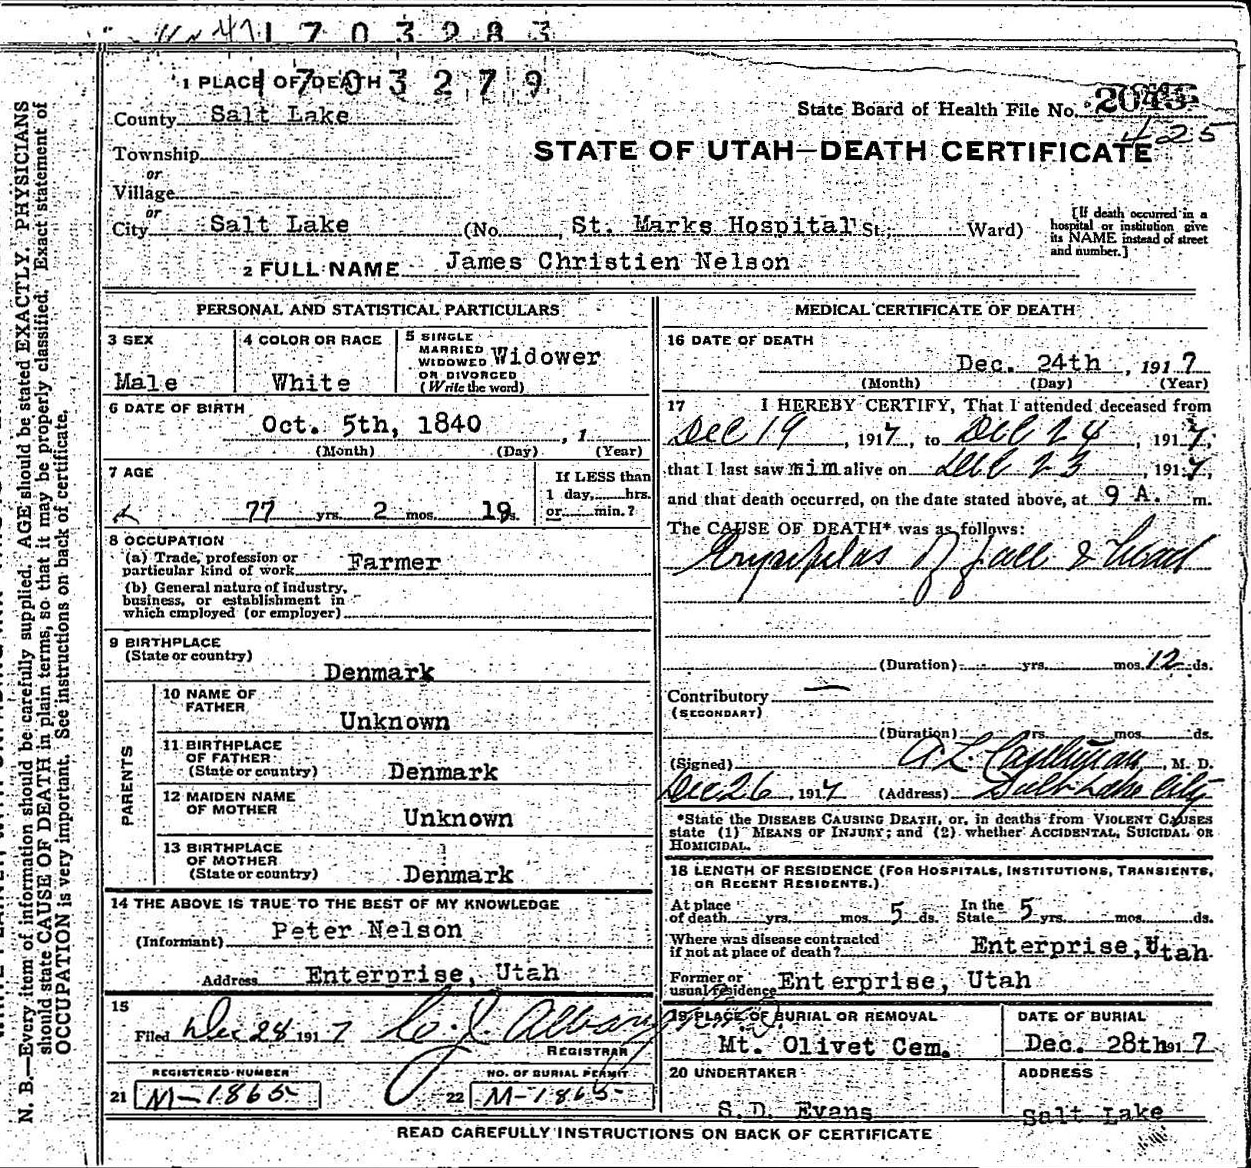 1703283
1703279
1 PLACE OF DEATH
County Salt Lake
State Board of Health File No. 2043
425
Township
or
Village
or
STATE OF UTAH—DEATH CERTIFICATE
City Salt Lake (No. , St. Marks Hospital St.; Ward)
[If death occurred in a hospital or institution give its NAME instead of street and number.]
2 FULL NAME James Christien Nelson
PERSONAL AND STATISTICAL PARTICULARS
3 SEX
Male
4 COLOR OR RACE
White
5 SINGLE
MARRIED
WIDOWED
OR DIVORCED
(Write the word)
Widower
6 DATE OF BIRTH
Oct. 5th, 1840 , 1
(Month) (Day) (Year)
7 AGE
77 yrs. 2 mos. 19 s.
If LESS than
1 day, hrs.
or min.?
8 OCCUPATION
(a) Trade, profession or
particular kind of work Farmer
(b) General nature of industry,
business, or establishment in
which employed (or employer)
9 BIRTHPLACE
(State or country)
Denmark
PARENTS
10 NAME OF
FATHER
Unknown
11 BIRTHPLACE
OF FATHER
(State or country) Denmark
12 MAIDEN NAME
OF MOTHER
Unknown
13 BIRTHPLACE
OF MOTHER
(State or country) Denmark
14 THE ABOVE IS TRUE TO THE BEST OF MY KNOWLEDGE
(Informant) Peter Nelson
Address Enterprise, Utah
15
Filed Dec 28 1917
REGISTRAR
REGISTERED NUMBER
21 M-1865
NO. OF BURIAL PERMIT
22 M-1865
MEDICAL CERTIFICATE OF DEATH
16 DATE OF DEATH
Dec. 24th , 1917
(Month) (Day) (Year)
17 I HEREBY CERTIFY, That I attended deceased from
Dec 19 , 1917, to Dec 24 , 1917,
that I last saw him alive on Dec 23 , 1917,
and that death occurred, on the date stated above, at 9 A. m.
The CAUSE OF DEATH* was as follows:
Erysipelas of face & head
(Duration) yrs. mos. 12 ds.
Contributory —
(SECONDARY)
(Duration) yrs. mos. ds.
(Signed) A L , M. D.
Dec 26 , 1917 (Address) Salt Lake City
*State the DISEASE CAUSING DEATH, or, in deaths from VIOLENT CAUSES
state (1) MEANS OF INJURY; and (2) whether ACCIDENTAL, SUICIDAL OR
HOMICIDAL.
18 LENGTH OF RESIDENCE (FOR HOSPITALS, INSTITUTIONS, TRANSIENTS,
OR RECENT RESIDENTS.)
At place of death yrs. mos. 5 ds. In the State 5 yrs. mos. ds.
Where was disease contracted
if not at place of death? Enterprise, Utah
Former or
usual residence Enterprise, Utah
19 PLACE OF BURIAL OR REMOVAL
Mt. Olivet Cem.
DATE OF BURIAL
Dec. 28th 1917
20 UNDERTAKER
S.D. Evans
ADDRESS
Salt Lake
READ CAREFULLY INSTRUCTIONS ON BACK OF CERTIFICATE
N. B.—Every item of information should be carefully supplied. AGE should be stated EXACTLY. PHYSICIANS
should state CAUSE OF DEATH in plain terms, so that it may be properly classified. Exact statement of
OCCUPATION is very important. See instructions on back of certificate.